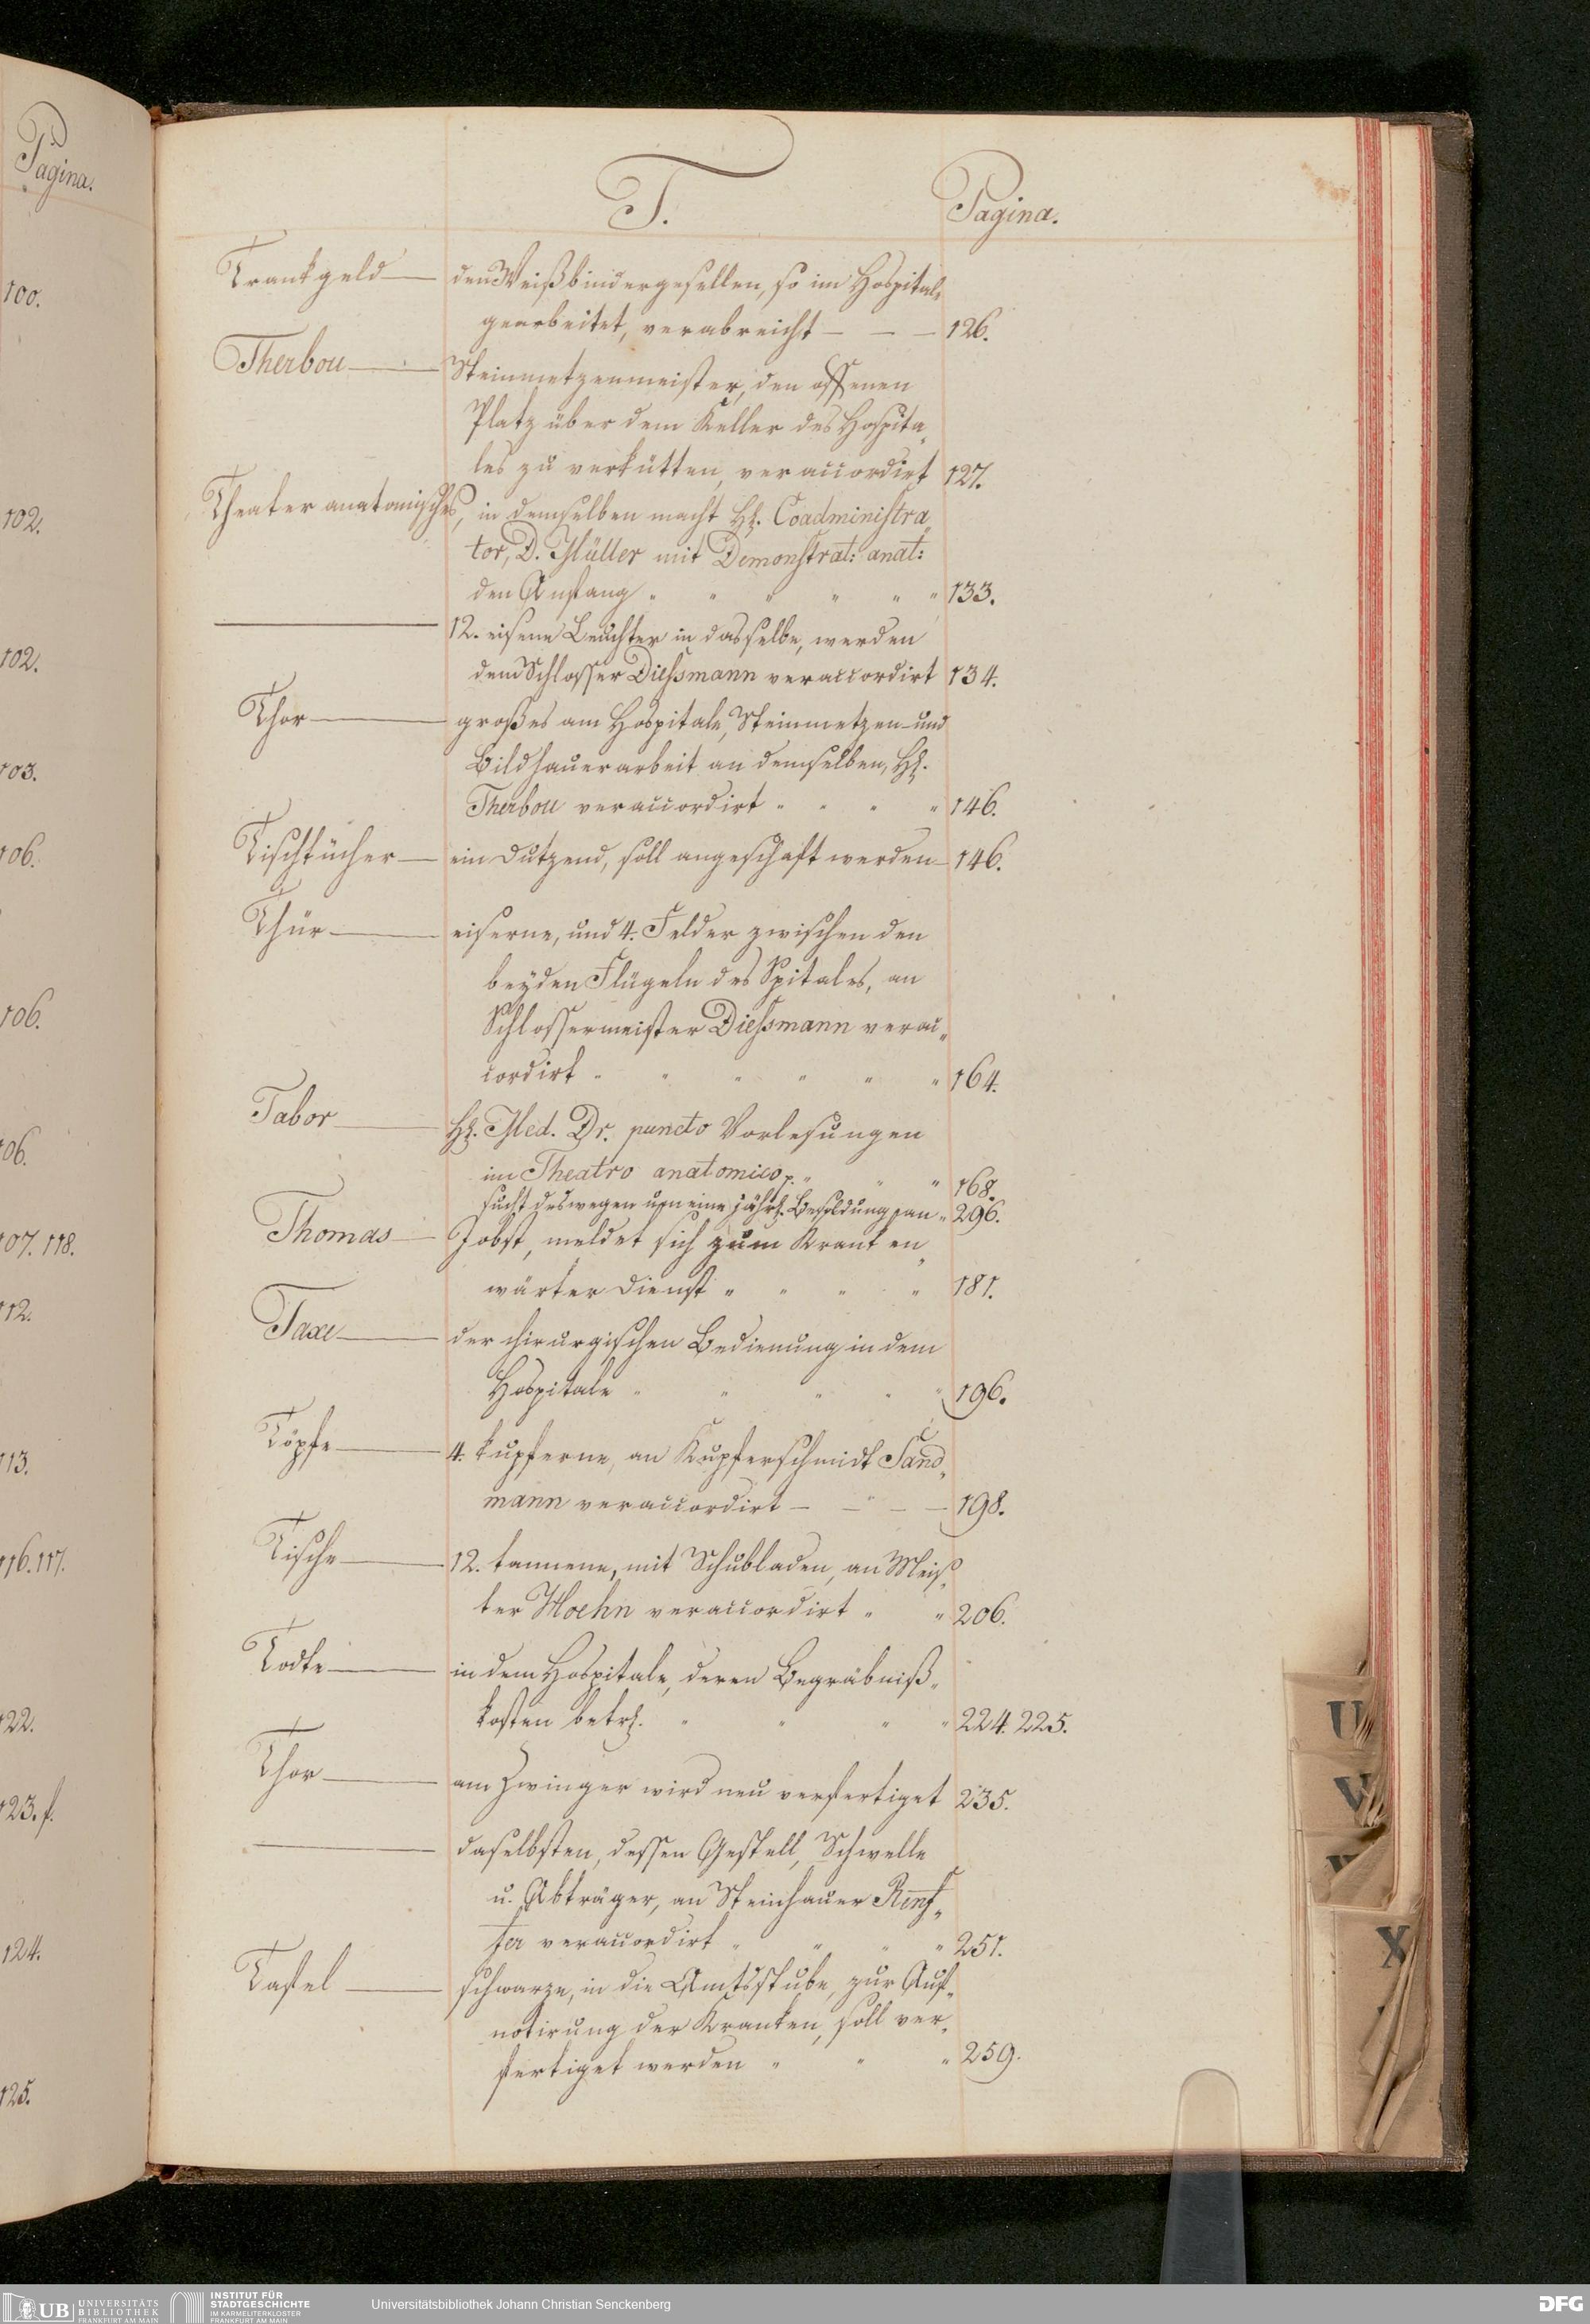 Pagina.
100.
102.
102.
103.
106.
106.
106.
107. 118.
112.
113.
116. 117.
122.
123. f.
124.
125.
T. Pagina.
Trankgeld — den Weißbindergesellen, so im Hospital,
gearbeitet, verabreicht — — — 126.
Therbou — Steinmetzenmeister, den offenen
Platz über dem Keller des Hospita„
les zu verkütten, veraccordirt 127.
Theater anatomisches, in demselben macht H. Coadministra„
tor, D. Müller mit Demonstrat: anat:
den Anfang „ „ „ „ „ „ 133.
— 12. eisene Leuchter in dasselbe, werden
dem Schlosser Diessmann veraccordirt 134.
Thor — großes am Hospitale, Steinmetzen- und
Bildhauerarbeit an demselben, H.
Therbou veraccordirt „ „ „ „ 146.
Tischtücher — ein Dutzend, soll angeschaft werden — 146.
Thür — eiserne, und 4. Felder zwischen den
beyden Flügeln des Spitales, an
Schlossermeister Diessmann verac„
cordirt „ „ „ „ „ „ 164.
Tabor — H. Med. Dr. puncto Vorlesungen
im Theatro anatomico p. „ „ „ 168.
sucht deswegen um eine jährl. Besoldung an „ 296.
Thomas — Jobst, meldet sich zum Kranken„
wärter Dienst „ „ „ „ 181.
Taxe — der chirurgischen Bedienung in dem
Hospitale „ „ „ „ „ 196.
Töpfe — 4. kupferne, an Kupferschmidt Sand„
mann veraccordirt — — „ — — 198.
Tische — 12. tannene, mit Schubladen, an Meis„
ter Hoehn veraccordirt „ „ 206.
Todte — in dem Hospitale, deren Begräbniß„
kosten betr. „ „ „ „ 224. 225.
Thor — am Zwinger wird neu verfertiget 235.
— daselbsten, dessen Gestell, Schwelle
u. Abträger, an Steinhauer
veraccordirt „ „ „ „ 251.
Tafel — schwarze, in die Amtsstube, zur Auf„
notirung der Kranken, soll ver„
fertiget werden „ „ „ 259.
U
V
W
X
UB UNIVERSITÄTS BIBLIOTHEK FRANKFURT AM MAIN
INSTITUT FÜR STADTGESCHICHTE IM KARMELITERKLOSTER FRANKFURT AM MAIN
Universitätsbibliothek Johann Christian Senckenberg
DFG